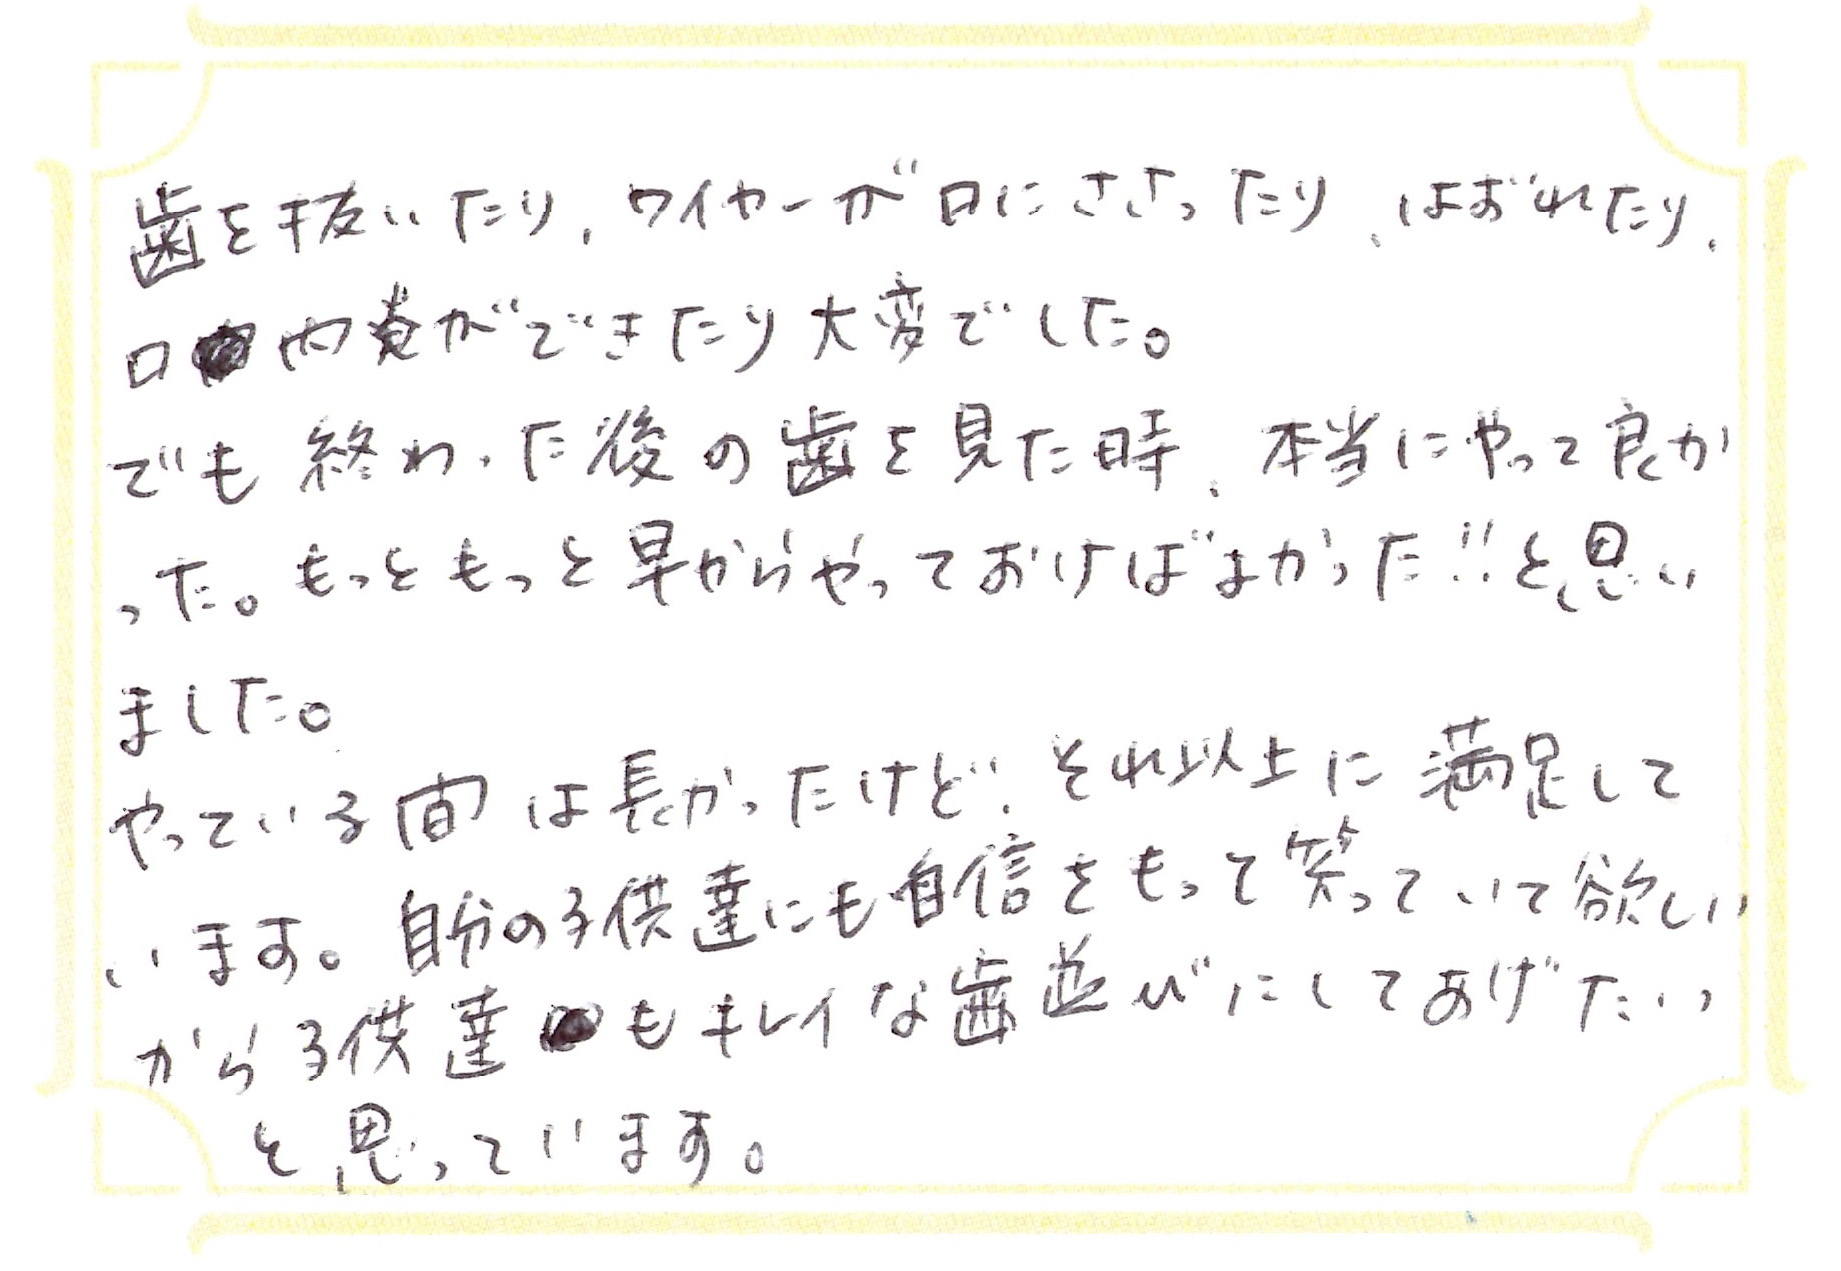 歯を抜いたり、ワイヤーが口にささったり、はずれたり、
口内炎ができたり大変でした。
でも終わった後の歯を見た時、本当にやって良か
った。もっともっと早からやっておけばよかった!!と思い
ました。
やっている間は長かったけど、それ以上に満足して
います。自分の子供達にも自信をもって笑っていて欲しい
から子供達もキレイな歯並びにしてあげたい
と思っています。